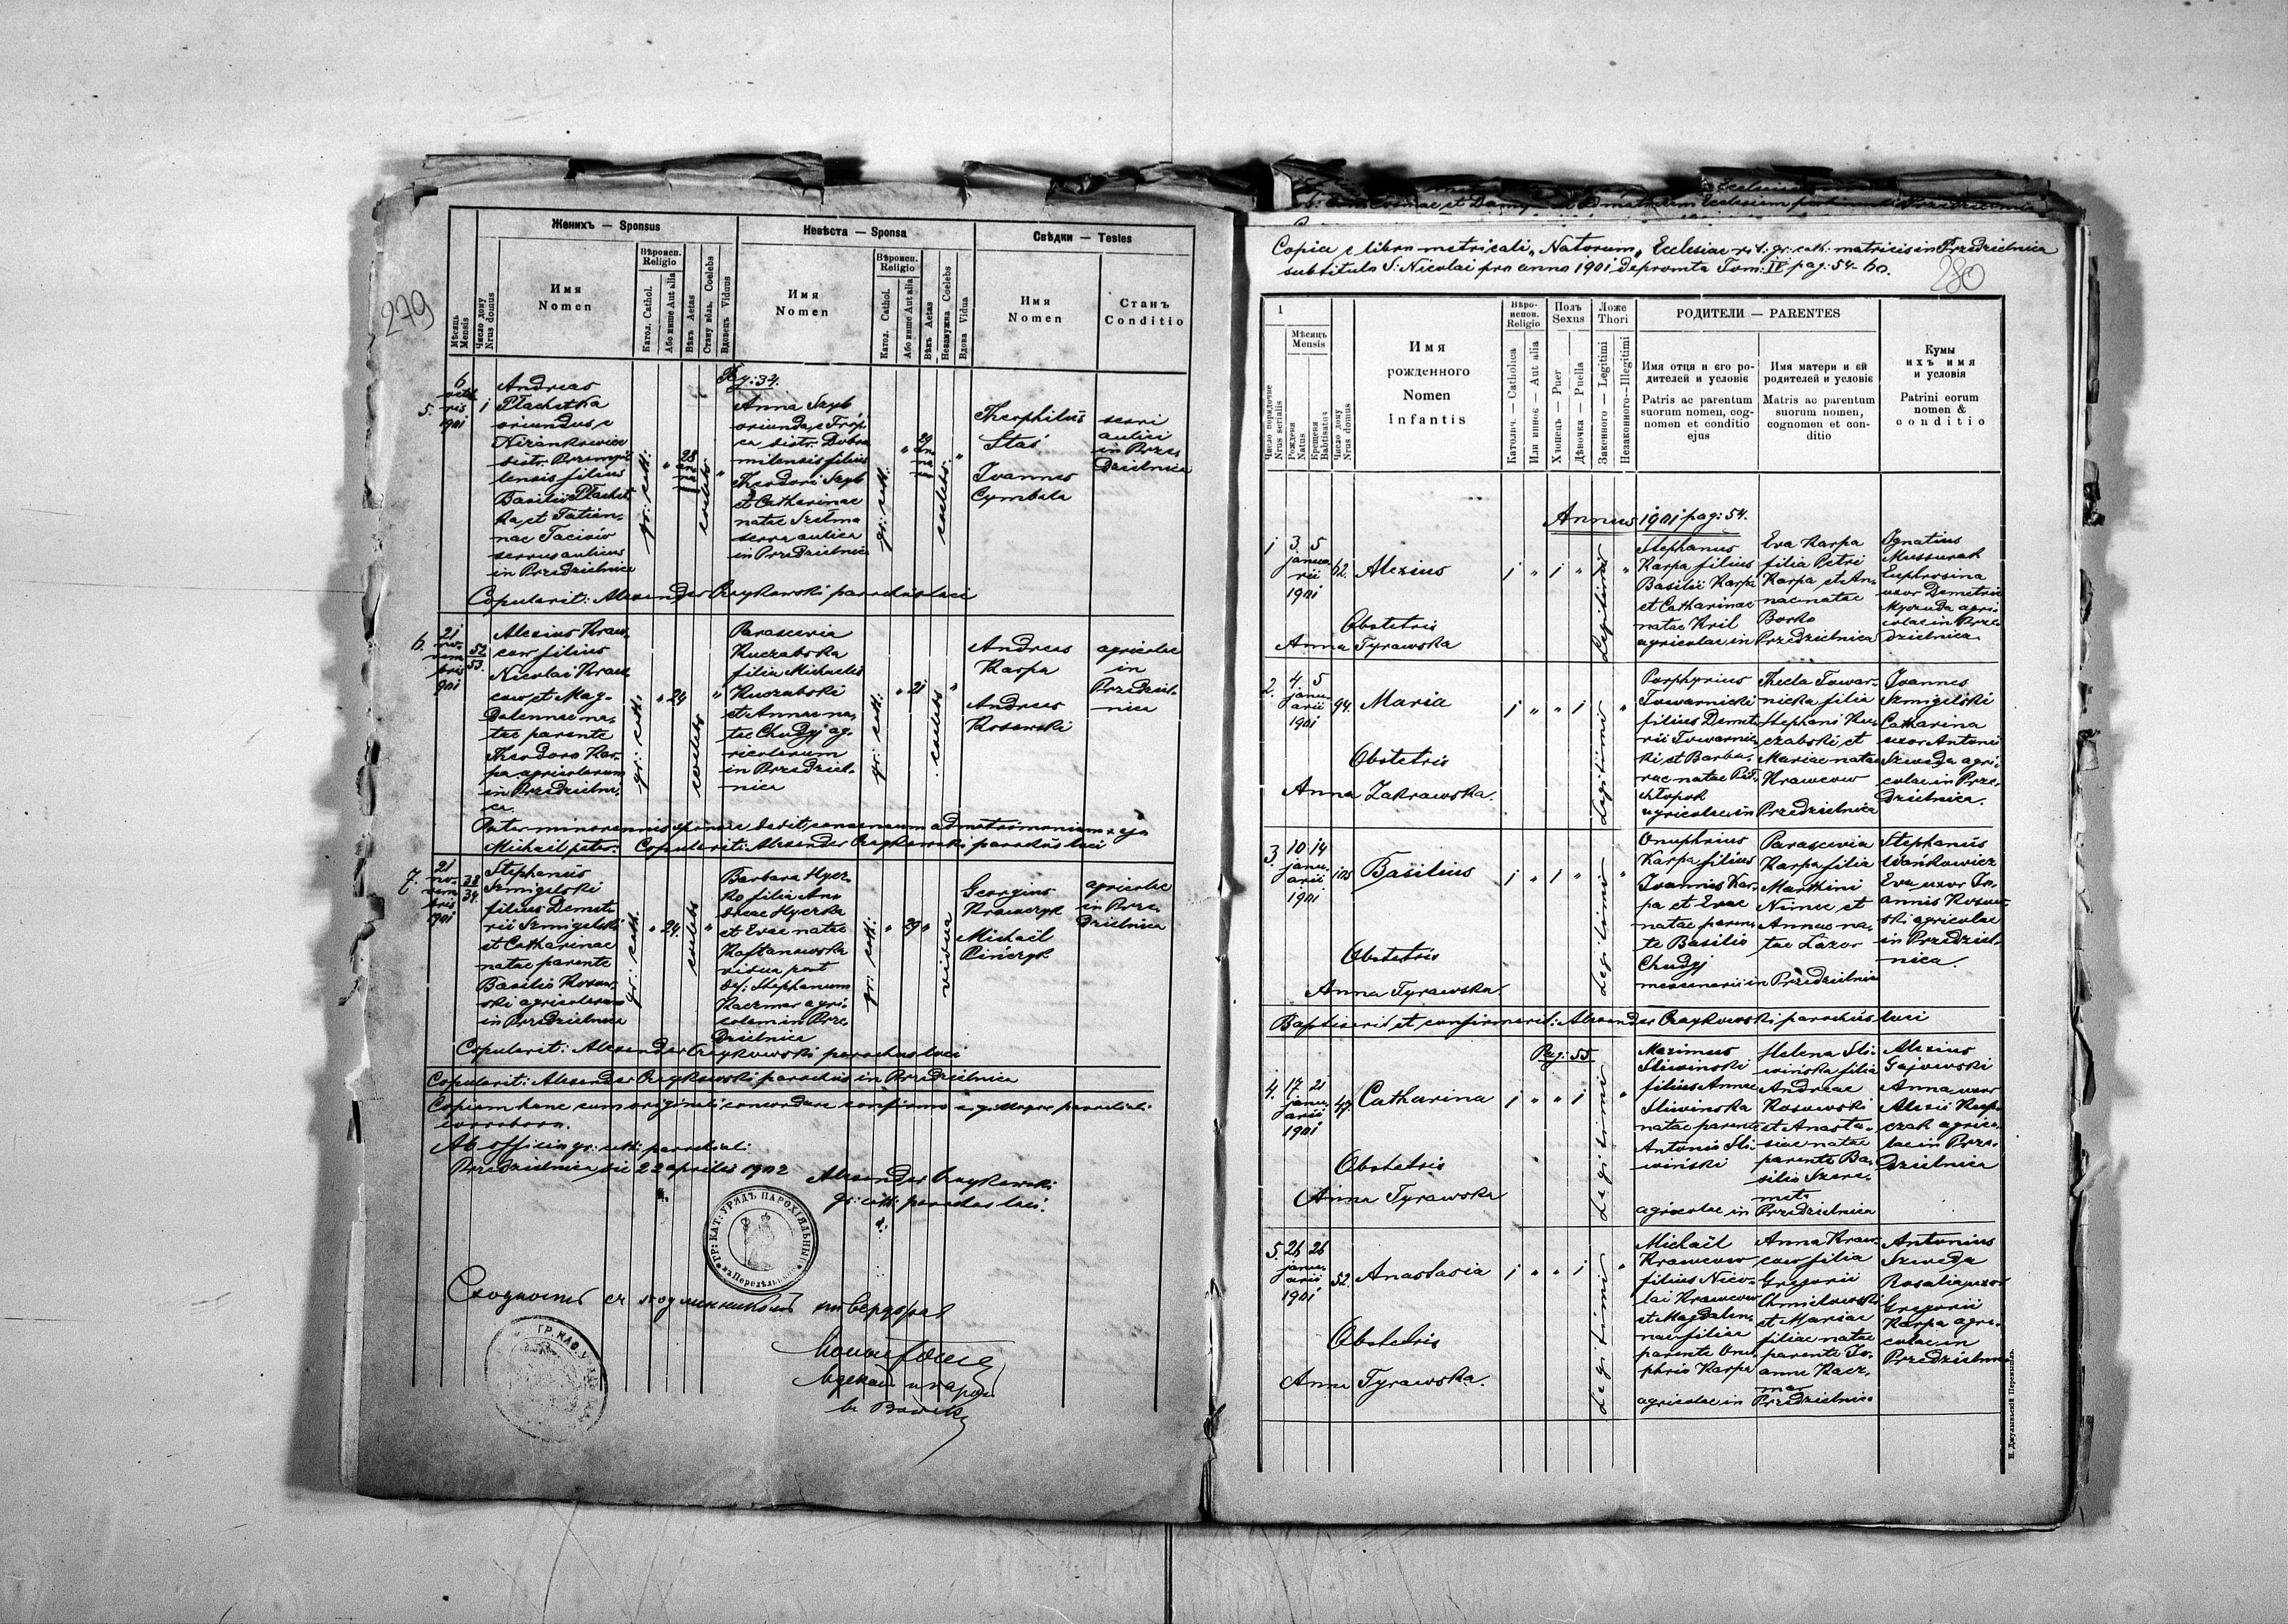 279
Женихъ — Sponsus
Невѣста — Sponsa
Свѣдки — Testes
Мѣсяць Mensis
Число дому Nrus domus
Имя
Nomen
Вѣроисп.
Religio
Катол. Cathol.
Або инше Aut alia
Вѣкъ Aetas
Стану вôль. Coelebs
Вдовець Viduus
Имя
Nomen
Вѣроисп.
Religio
Катол. Cathol.
Або инше Aut alia
Вѣкъ Aetas
Незамужна Coelebs
Вдова Vidua
Имя
Nomen
Станъ
Conditio
Pag: 34.
5.
6
1901
1
Andreas
Płachetka
oriundus e
Niżankowice
distr. Przemys
lensis filius
Basilii Płachet
ka et Tatian-
nae
servus aulicus
in Przedzielnica
gr: cath:
28
coelebs
Anna Szyb
oriunda e Trój
ca distr. Dobro
milensis filius
Theodori Szyb
et Catharinae
natae
serva aulica
in Przedzielnica
gr: cath:
29
coelebs
Theophilus
Staś
Joannes
Cymbala
servi
aulici
in Prze
dzielnica
Copulavit: Alexander Czaykowski parochus loci
6.
21
no-
vem
bris
901
52
53.
Alexius Kraw-
cow filius
Nicolai Kraw
cow et Mag-
dalennae na-
tae parente
Theodoro Kar-
pa agricolarum
in Przedzielni-
ca.
gr: cath:
24
coelebs
Parascevia
Kuczabska
filia Michaelis
Kuczabski
et Annae na-
tae Chudyj ag-
ricolarum
in Przedziel-
nica
gr: cath:
21
coelebs
Andreas
Karpa
Andreas
Kosowski
agricolae
in
Przedziel-
nica
Pater minorennis sponsae dedit consensum ad matrimonium
Michael pater. Copulavit: Alexander Czaykowski parochus loci
7.
21
no-
vem
bris
1901
38
34.
Stephanus
Szmigelski
filius Demet-
rii Szmigelski
et Catharinae
natae parente
Basilio Kosow-
ski agricolarum
in Przedzielnica
gr: cath.
24.
coelebs
Barbara Hycz-
ko filia An-
dreae Hyczka
et Evae natae
Kaftanowska
vidua post
def: Stephanum
Kaczmar agri-
colam in Prze-
dzielnica
gr: cath:
39
vidua
Georgius
Krawczyk
Michaël
Pińczyk
agricolae
in Prze-
dzielnica
Copulavit: Alexander Czaykowski parochus loci
Copulavit: Alexander Czaykowski parochus in Przedzielnica
Copiam hanc cum originali concordare confirmo
corroboro.
Ab officio gr: cath: parochiali
Przedzielnica die 22 aprilis 1902
Alexander Czaykowski
gr: cath: parochus loci.
ГР: КАТ: УРЯДЪ ПАРОХІЯЛЬНЫЙ
Сходность съ подлинникомъ
280
Copia e libro metricali „Natorum„ Ecclesiae rit. gr. cath. matricis in Przedzielnica
sub titulo S: Nicolai pro anno 1901 depromta Tom: IV pag: 54-60.
1
Число порядочне Nrus serialis
Мѣсяць
Mensis
Рожденя Natus
Крещеня Babtisatus
Число дому Nrus domus
Имя
рожденного
Nomen
infantis
Вѣро-
испов.
Religio
Католич. — Catholica
Или инное — Aut alia
Полъ
Sexus
Хлопець — Puer
Дѣвочка — Puella
Ложе
Thori
Законного — Legitimi
Незаконного — Illegitimi
РОДИТЕЛИ — PARENTES
Имя отця и єго ро-
дителей и условіє
Patris ac parentum
suorum nomen, cog-
nomen et conditio
ejus
Имя матери и єй
родителей и условіє
Matris ac parentum
suorum nomen,
cognomen et con-
ditio
Кумы
ихъ имя
и условія
Patrini eorum
nomen &
conditio
Annus 1901 pag: 54.
1
3 5
janua-
rii
1901
62.
Alexius
Obstetrix
Anna Tyrawska
Legitimi
Stephanus
Karpa filius
Basilii Karpa
et Catharinae
natae Kril
agricolae in Przedzielnica
Eva Karpa
filia Petri
Karpa et An-
nae natae
Borko
Ignatius
Mussurak
Euphrosina
uxor Demetrii
Myczuda agri-
colae in Prze-
dzielnica
2.
4 5
janu-
arii
1901
94.
Maria
Obstetrix
Anna Zakrawska.
Legitimi
Porphyrius
Towarnicki
filius Demet-
rii Towarnic-
ki et Barba-
rae natae Pid-
chłopok
agricolae in Przedzielnica
Thecla Towar-
nicka filia
Stephani Ku-
czabski et
Mariae natae
Krawcow
Joannes
Szmigelski
Catharina
uxor Antonii
Szweda agri-
colae in Prze-
dzielnica.
3.
10 14
janu-
arii
1901
105
Basilius
Obstetrix
Anna Tyrawska.
Legitimi
Onuphrius
Karpa filius
Joannis Kar-
pa et Evae
natae paren-
te Basilio
Chudyj
mercenarii in Przedzielnica
Parascevia
Karpa filia
Martini
Nimec et
Annae na-
tae Łazor
Stephanus
Wańkowicz
Eva uxor Jo-
annis Kosow-
ski agricolae
in Przedziel-
nica.
Baptisavit et confirmavit: Alexander Czaykowski parochus loci
Pag: 55.
4.
17 21
janu-
arii
1901
47.
Catharina
Obstetrix
Anna Tyrawska
Legitimi
Maximus
Sliwinski
filius Annae
Sliwinska
natae parente
Antonio Sli-
wiński
agricolae in Przedzielnica
Helena Sli-
wińska filia
Andreae
Kosowski
et Anasta-
siae natae
parente Ba-
silio Szere-
meta
Alexius
Gajowski
Anna uxor
Alexii Karp-
czak agrico-
lae in Prze-
dzielnica
5.
26 26
janu-
arii
1901
52.
Anastasia
Obstetrix
Anna Tyrawska.
Legitimi
Michaël
Krawcow
filius Nico-
lai Krawcow
et Magdalen-
nae filiae
parente Onu-
phrio Karpa
agricolae in Przedzielnica
Anna Kraw-
cow filia
Gregorii
Chmielowski
et Mariae
filiae natae
parente Jo-
anne Kacz-
mar
Antonius
Szweda
Rosalia uxor
Gregorii
Karpa agri-
colae in
Przedzielnica